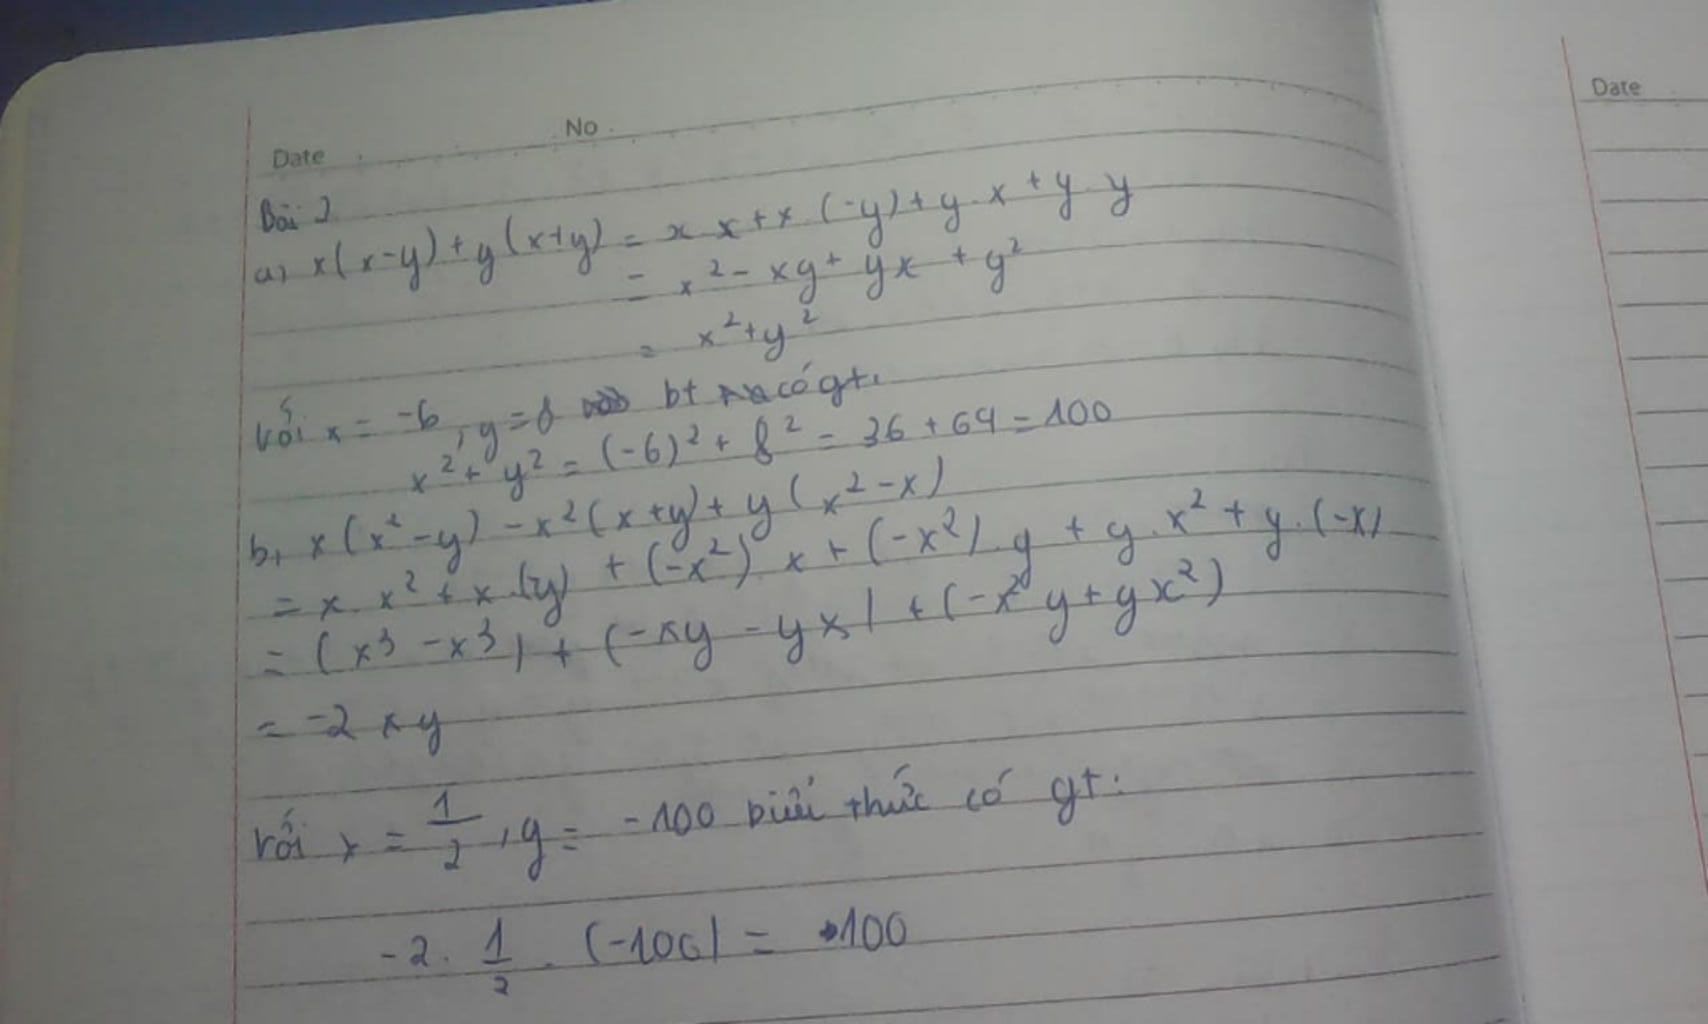 Date No Date
Bài 2
a, x(x-y)+y(x+y) = x.x+x.(-y)+y.x+y.y
= x²-xy+yx+y²
= x²+y²
Với x = -6, y=8 bt có gt:
x²+y² = (-6)²+8² = 36+64=100
b, x(x²-y)-x²(x+y)+y(x²-x)
= x.x²+x.(-y)+(-x²).x+(-x²).y+y.x²+y.(-x)
= (x³-x³)+(-xy-yx)+(-x²y+yx²)
= -2xy
Với x = 1/2, y = -100 biểu thức có gt:
-2. 1/2 . (-100) = 100